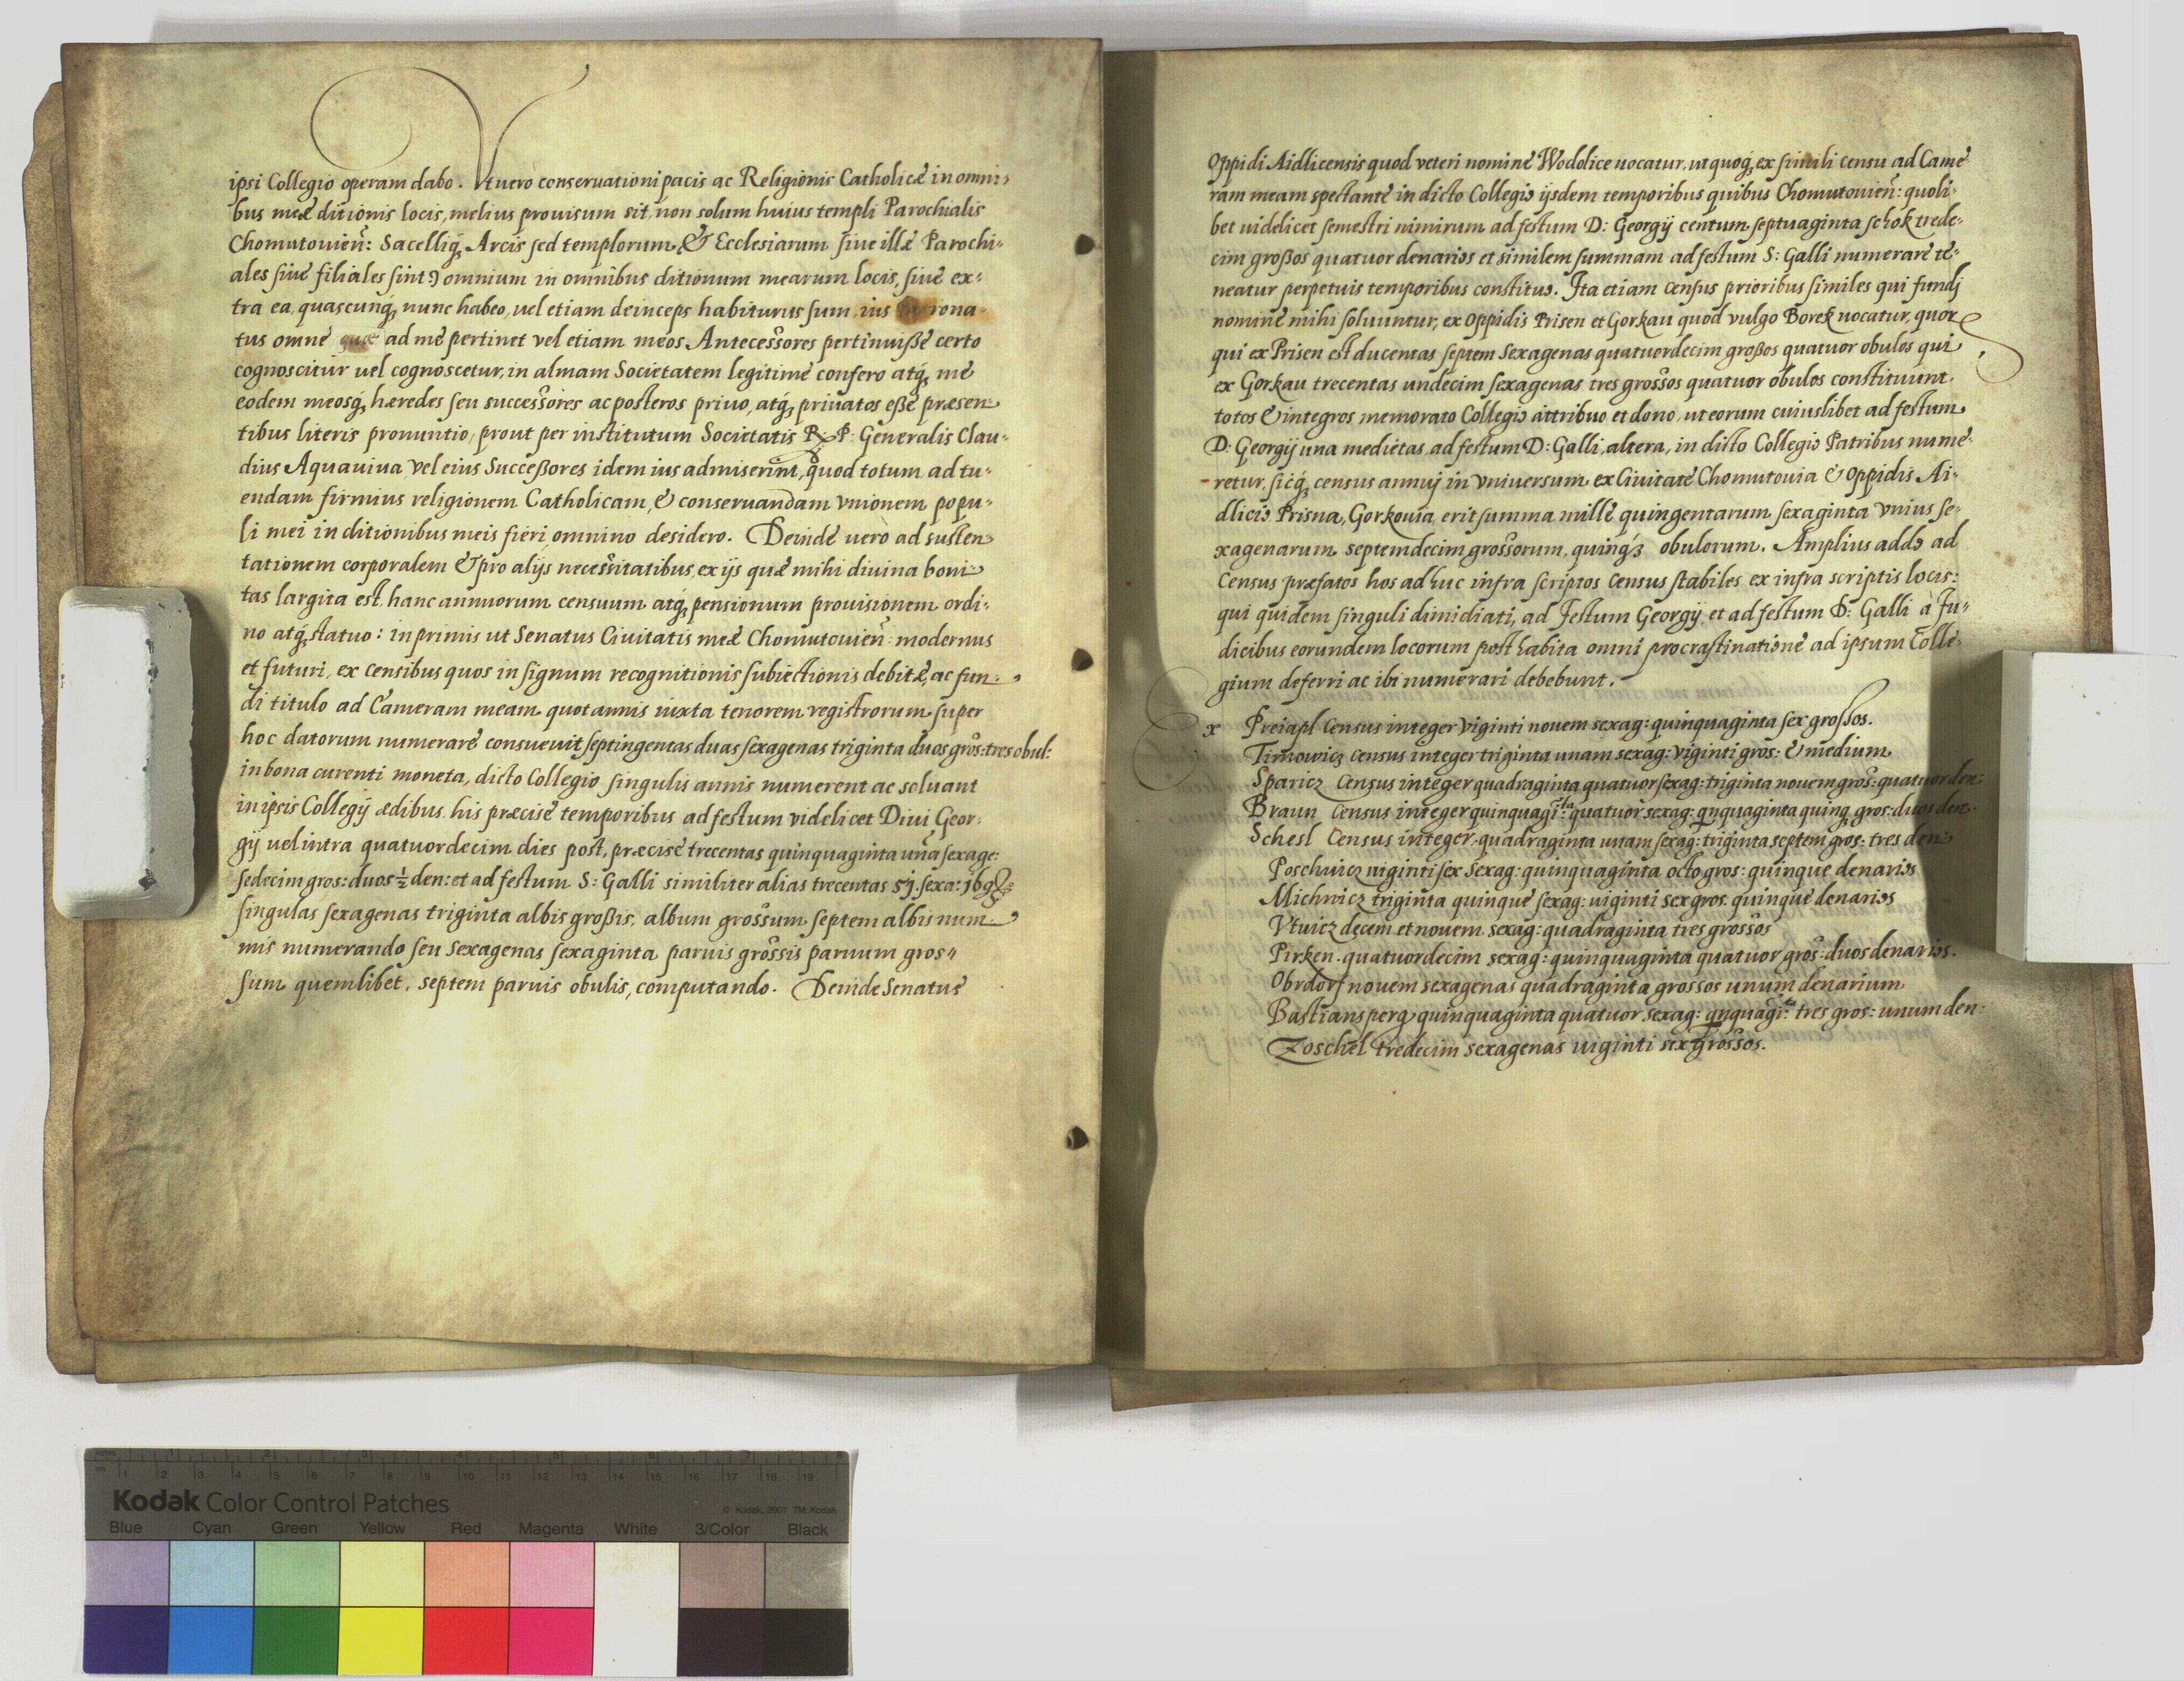 ipsi Collegio operam dabo. Vt uero conseruationi pacis ac Religionis Catholicæ in omni-
bus meæ ditionis locis, melius prouisum sit, non solum huius templi Parochialis
Chomutouien̄: Sacelliq́ꝫ Arcis sed templorum, & Ecclesiarum siue illæ Parochi-
ales siue filiales sint) omnium in omnibus ditionum mearum locis, siue ex-
tra ea, quascunq́ꝫ nunc habeo, uel etiam deinceps habiturus sum, ius rona-
tus omne quæ ad me pertinet vel etiam meos Antecessores pertinuiße certo
cognoscitur uel cognoscetur, in almam Societatem legitime confero atq́ꝫ me
eodem meosq́ꝫ hæredes seu successores ac posteros priuo, atq́ꝫ priuatos eße præsen-
tibus literis pronuntio, prout per institutum Societatis R. P. Generalis Clau-
dius Aquauiua vel eius Succeßores idem ius admiserint, quod totum ad tu-
endam firmius religionem Catholicam, & conseruandam vnionem popu-
li mei in ditionibus meis fieri omnino desidero. Deinde uerò ad susten-
tationem corporalem & pro alijs necessitatibus, ex ijs quæ mihi diuina boni-
tas largita est, hanc annuorum censuum atq́ꝫ pensionum prouisionem ordi-
no atq́ꝫ statuo: inprimis ut Senatus Ciuitatis meæ Chomutouien̄: modernus
et futuri, ex censibus quos in signum recognitionis subiectionis debitæ, ac fun-
di titulo ad Cameram meam quotannis iuxta tenorem registrorum super
hoc datorum numerare consueuit septingentas duas sexagenas triginta duos gros: tres obul:
in bona curenti moneta, dicto Collegio singulis annis numerent ac soluant
in ipsis Collegij ædibus, his præcise temporibus ad festum videlicet Diui Geor-
gij uel intra quatuordecim dies post, præcise trecentas quinquaginta una sexage:
sedecim gros: duos ½ den: et ad festum S: Galli similiter alias trecentas 51. sexa: 16 g
singulas sexagenas triginta albis großis, album grossum septem albis num-
mis numerando seu Sexagenas sexaginta paruis grossis paruum gros-
sum quemlibet, septem paruis obulis, computando. Deinde Senatus
Oppidi Aidlicensis quod veteri nomine Wodolice uocatur, ut quoq́ꝫ ex simili censu ad Came
ram meam spectante in dicto Collegio ijsdem temporibus quibus Chomutouien̄: quoli-
bet uidelicet semestri nimirum ad festum D: Georgij centum septuaginta schok trede-
cim großos quatuor denarios et similem summam ad festum S: Galli numerare te-
neatur perpetuis temporibus constituo. Ita etiam census prioribus similes qui fundj
nomine mihi soluuntur, ex Oppidis Prisen et Gorkau quod vulgo Borek uocatur, quor
qui ex Prisen est ducentas septem Sexagenas quatuordecim großos quatuor obulos qui
ex Gorkau trecentas undecim sexagenas tres grossos quatuor obulos constituunt.
totos & integros memorato Collegio attribuo et dono, ut eorum cuiuslibet ad festum
D: Georgij una medietas, ad festum D: Galli, altera, in dicto Collegio Patribus nume-
retur, sicq́ꝫ census annuj in vniuersum ex Ciuitate Chomutouia & Oppidis Ai-
dlicio Prisna, Gorkouia, erit summa mille quingentarum sexaginta vnius se-
xagenarum septemdecim grossorum, quinq́ꝫ obulorum. Amplius addo ad
Census præfatos hos adhuc infra scriptos Census stabiles ex infra scriptis locis:
qui quidem singuli dimidiati, ad Festum Georgij et ad festum D: Galli à Iu-
dicibus eorundem locorum posthabita omni procrastinatione ad ipsum Colle-
gium deferri ac ibi numerari debebunt.
Ex Preiapl Census integer viginti nouem sexag: quinquaginta sex grossos.
Tirnowicz census integer triginta unam sexag: viginti gros: & medium
Sparicz Census integer quadraginta quatuor sexag: triginta nouem gros: quatuor den:
Braun Census integer quinquagi:ta quatuor sexag: qnquaginta quinqꝫ gros: duos den:
Schesl Census integer quadraginta unam sexag: triginta septem gros: tres den:
Poschwicz uiginti sex Sexag: quinquaginta octo gros: quinque denarios
Michwicz triginta quinque sexag: uiginti sex gros: quinque denarios
Vtwicz decem et nouem sexag: quadraginta tres grossos
Pirken quatuordecim sexag: quinquaginta quatuor gros: duos denarios.
Obrdorf nouem sexagenas quadraginta grossos unum denarium
Bastiansperg quinquaginta quatuor sexag: qnquagi:ta tres gros: unum den:
Zoschel tredecim sexagenas uiginti sex grossos.
Kodak Color Control Patches
© Kodak, 2007 TM: Kodak
Blue Cyan Green Yellow Red Magenta White 3/Color Black